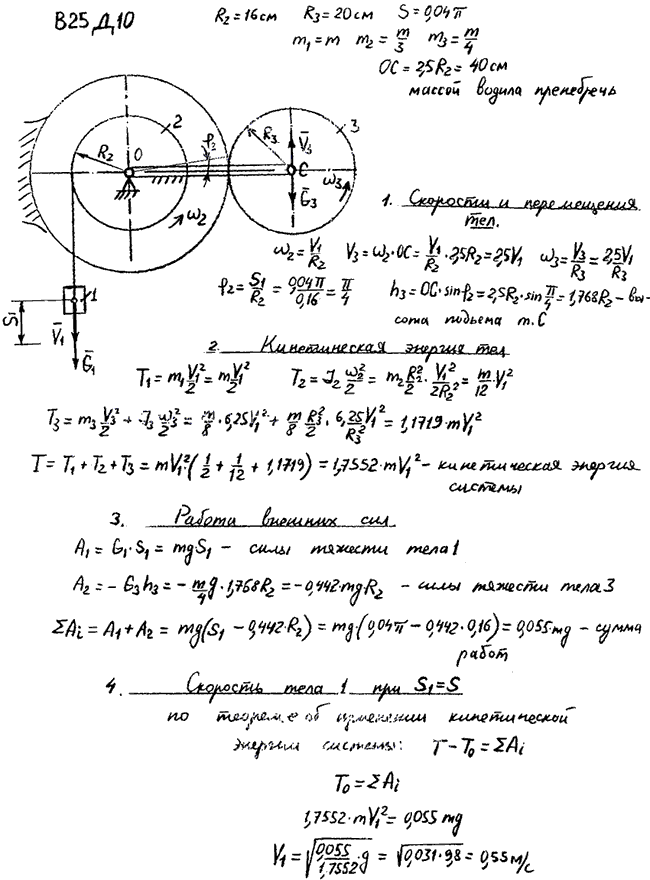 В25Д10
R₂ = 16см R₃ = 20см S = 0,04π
m₁ = m m₂ = m/3 m₃ = m/4
OC = 2,5R₂ = 40см
массой водила пренебречь
2
3
R₂
O
φ₂
R₃
V̄₃
C
Ḡ₃
ω₃
ω₂
1
S̄
V̄₁
Ḡ₁
1. Скорости и перемещения
тел.
ω₂ = V₁/R₂ V₃ = ω₂·OC = V₁/R₂·2,5R₂ = 2,5V₁ ω₃ = V₃/R₃ = 2,5V₁/R₃
φ₂ = S₁/R₂ = 0,04π/0,16 = π/4 h₃ = OC·sinφ₂ = 2,5R₂·sin π/4 = 1,768R₂ – вы-
сота подъема т.С
2. Кинетическая энергия тел
T₁ = m₁V₁²/2 = mV₁²/2 T₂ = J₂ω₂²/2 = m₂R₂²/2·V₁²/2R₂² = m/12·V₁²
T₃ = m₃V₃²/2 + J₃ω₃²/2 = m/8·6,25V₁² + m/8 R₃²/2·6,25/R₃² V₁² = 1,1719·mV₁²
T = T₁ + T₂ + T₃ = mV₁²·(1/2 + 1/12 + 1,1719) = 1,7552·mV₁² – кинетическая энергия
системы
3. Работа внешних сил
A₁ = G₁·S₁ = mgS₁ – силы тяжести тела 1
A₂ = –G₃h₃ = –m/4 g·1,768R₂ = –0,442·mgR₂ – силы тяжести тела 3
ΣAᵢ = A₁ + A₂ = mg(S₁ – 0,442·R₂) = mg·(0,04π – 0,442·0,16) = 0,055·mg – сумма
работ
4. Скорость тела 1 при S₁ = S
по теореме об изменении кинетической
энергии системы: T – T₀ = ΣAᵢ
T₀ = ΣAᵢ
1,7552·mV₁² = 0,055 mg
V₁ = √(0,055/1,7552·g) = √(0,031·9,8) = 0,55 м/с